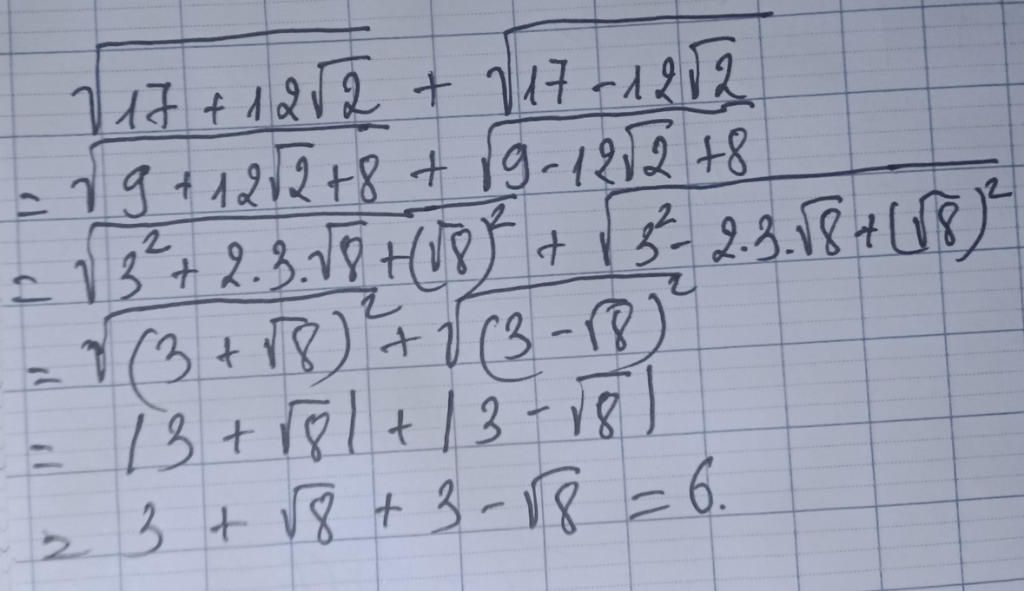 √(17 + 12√2) + √(17 - 12√2)
= √(9 + 12√2 + 8) + √(9 - 12√2 + 8)
= √(3² + 2.3.√8 + (√8)²) + √(3² - 2.3.√8 + (√8)²)
= √((3 + √8)²) + √((3 - √8)²)
= |3 + √8| + |3 - √8|
= 3 + √8 + 3 - √8 = 6.